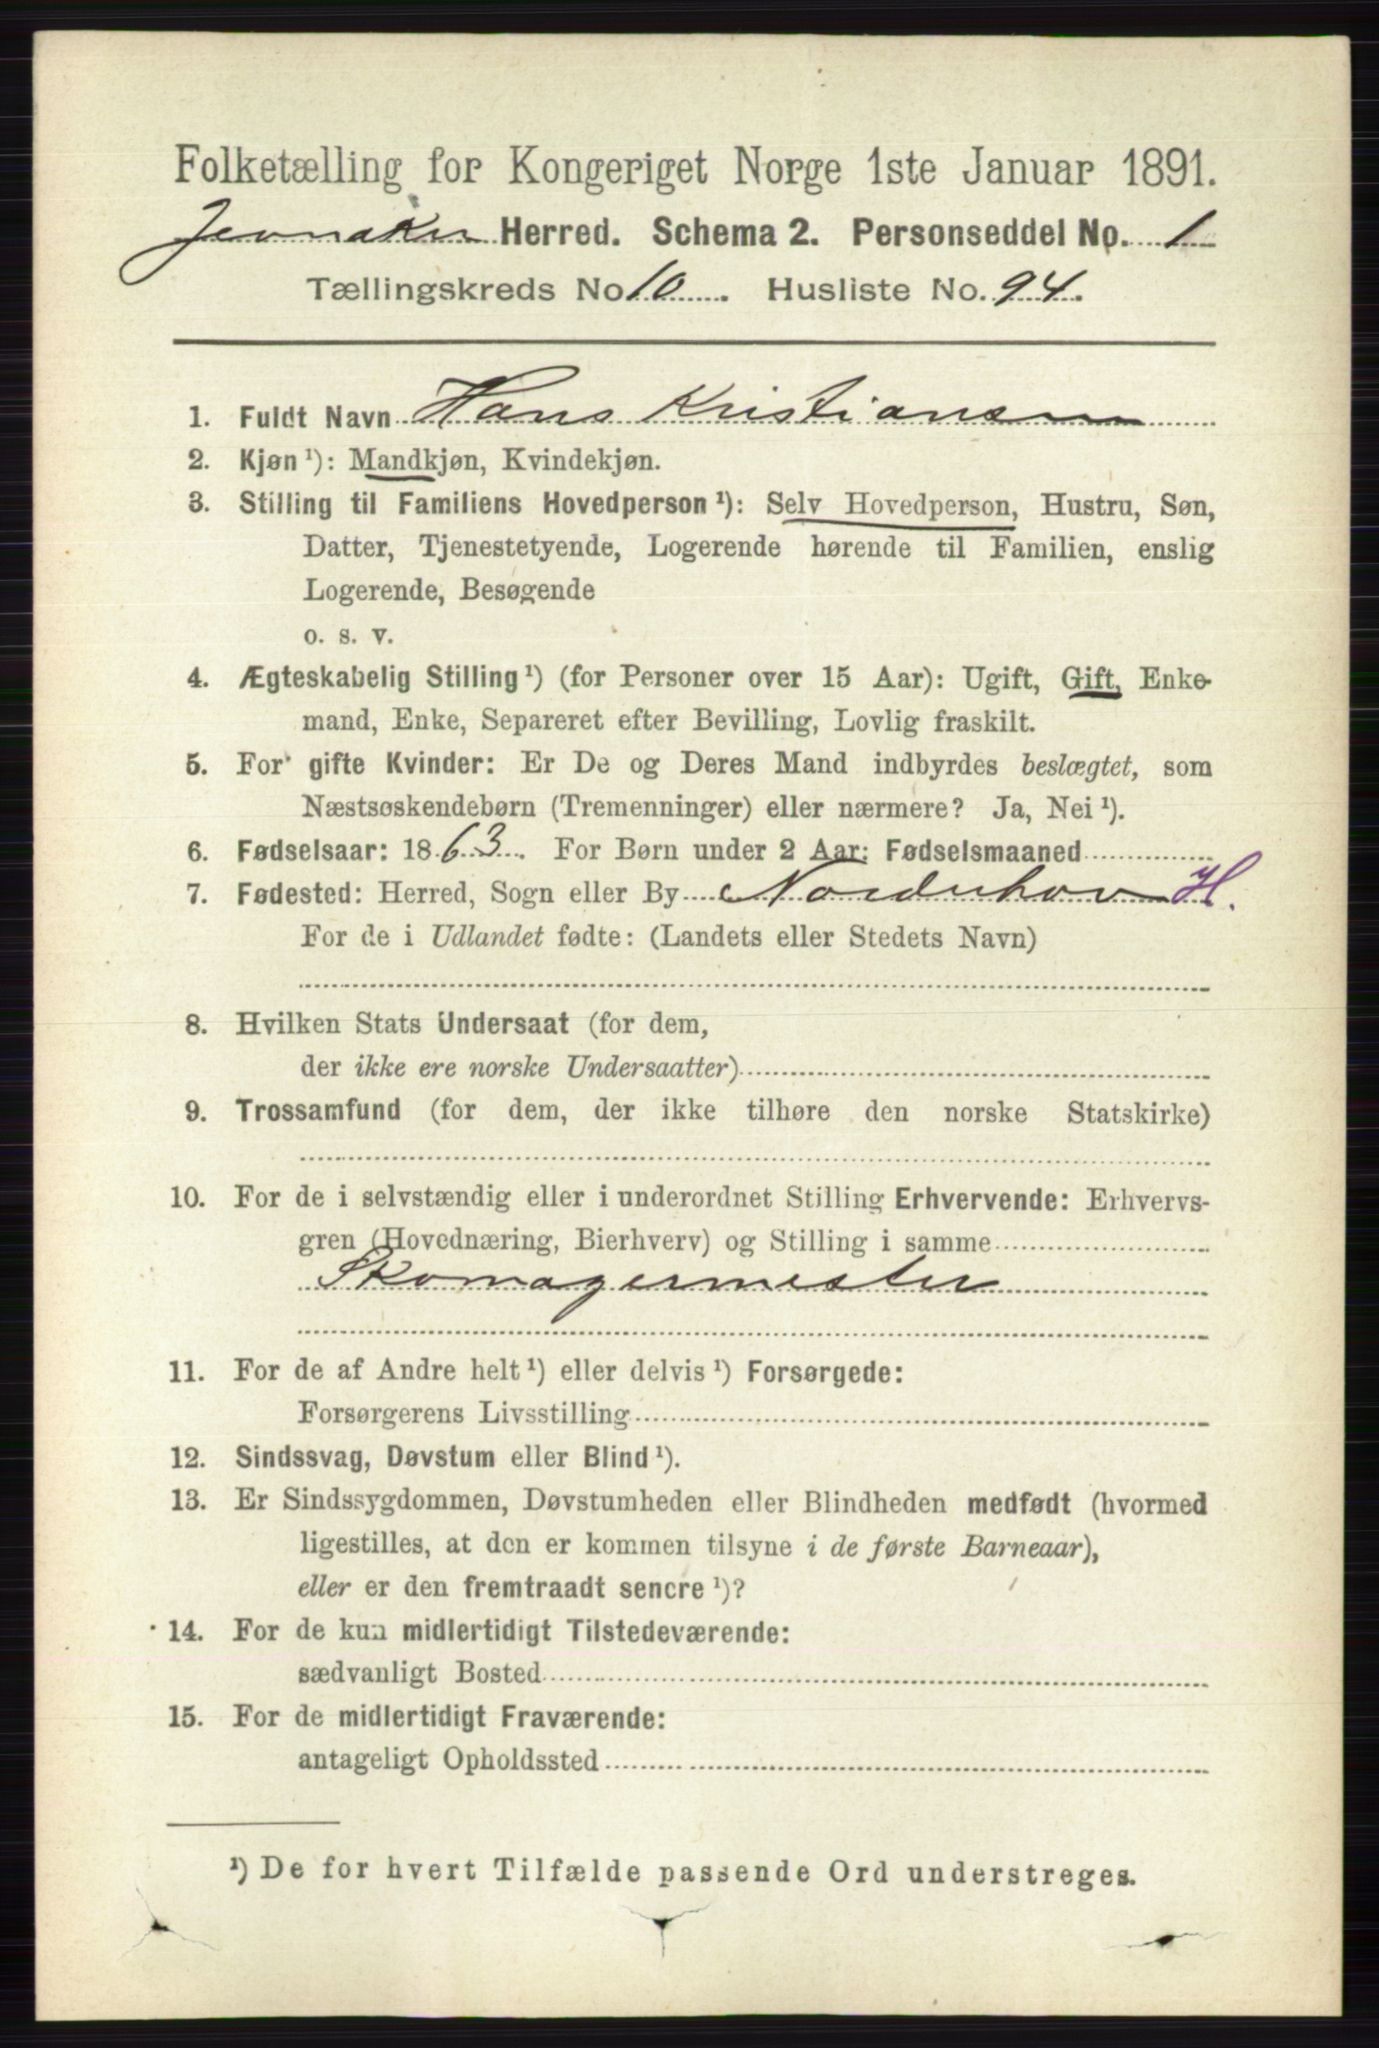 Folketælling for Kongeriget Norge 1ste Januar 1891.
Jevnaker Herred. Schema 2. Personseddel No. 1
Tællingskreds No 10. Husliste No. 94.
1. Fuldt Navn Hans Kristiansen
2. Kjøn ¹): Mandkjøn, Kvindekjøn.
3. Stilling til Familiens Hovedperson ¹): Selv Hovedperson, Hustru, Søn,
Datter, Tjenestetyende, Logerende hørende til Familien, enslig
Logerende, Besøgende
o. s. v.
4. Ægteskabelig Stilling ¹) (for Personer over 15 Aar): Ugift, Gift, Enke-
mand, Enke, Separeret efter Bevilling, Lovlig fraskilt.
5. For gifte Kvinder: Er De og Deres Mand indbyrdes beslægtet, som
Næstsøskendebørn (Tremenninger) eller nærmere? Ja, Nei ¹).
6. Fødselsaar: 1863. For Børn under 2 Aar: Fødselsmaaned
7. Fødested: Herred, Sogn eller By Norderhov H.
For de i Udlandet fødte: (Landets eller Stedets Navn)
8. Hvilken Stats Undersaat (for dem,
der ikke ere norske Undersaatter)
9. Trossamfund (for dem, der ikke tilhøre den norske Statskirke)
10. For de i selvstændig eller i underordnet Stilling Erhvervende: Erhvervs-
gren (Hovednæring, Bierhverv) og Stilling i samme
Skomagermester
11. For de af Andre helt ¹) eller delvis ¹) Forsørgede:
Forsørgerens Livsstilling
12. Sindssvag, Døvstum eller Blind ¹).
13. Er Sindssygdommen, Døvstumheden eller Blindheden medfødt (hvormed
ligestilles, at den er kommen tilsyne i de første Barneaar),
eller er den fremtraadt senere ¹)?
14. For de kun midlertidigt Tilstedeværende:
sædvanligt Bosted
15. For de midlertidigt Fraværende:
antageligt Opholdssted
¹) De for hvert Tilfælde passende Ord understreges.